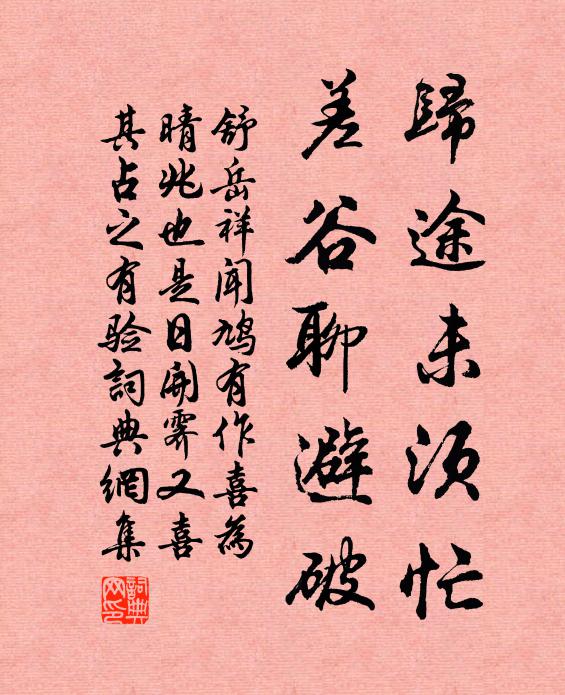 歸途未須忙
差谷聊避破
舒岳祥聞鳩有作喜為
晴兆也是日開霽又喜
其占之有验詞典網集
詞典
网印